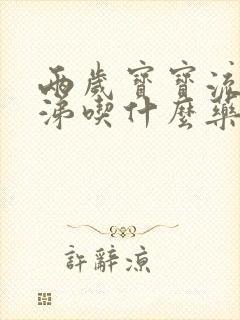 兩歲寶寶流
涕喫什麼藥
許辭涼